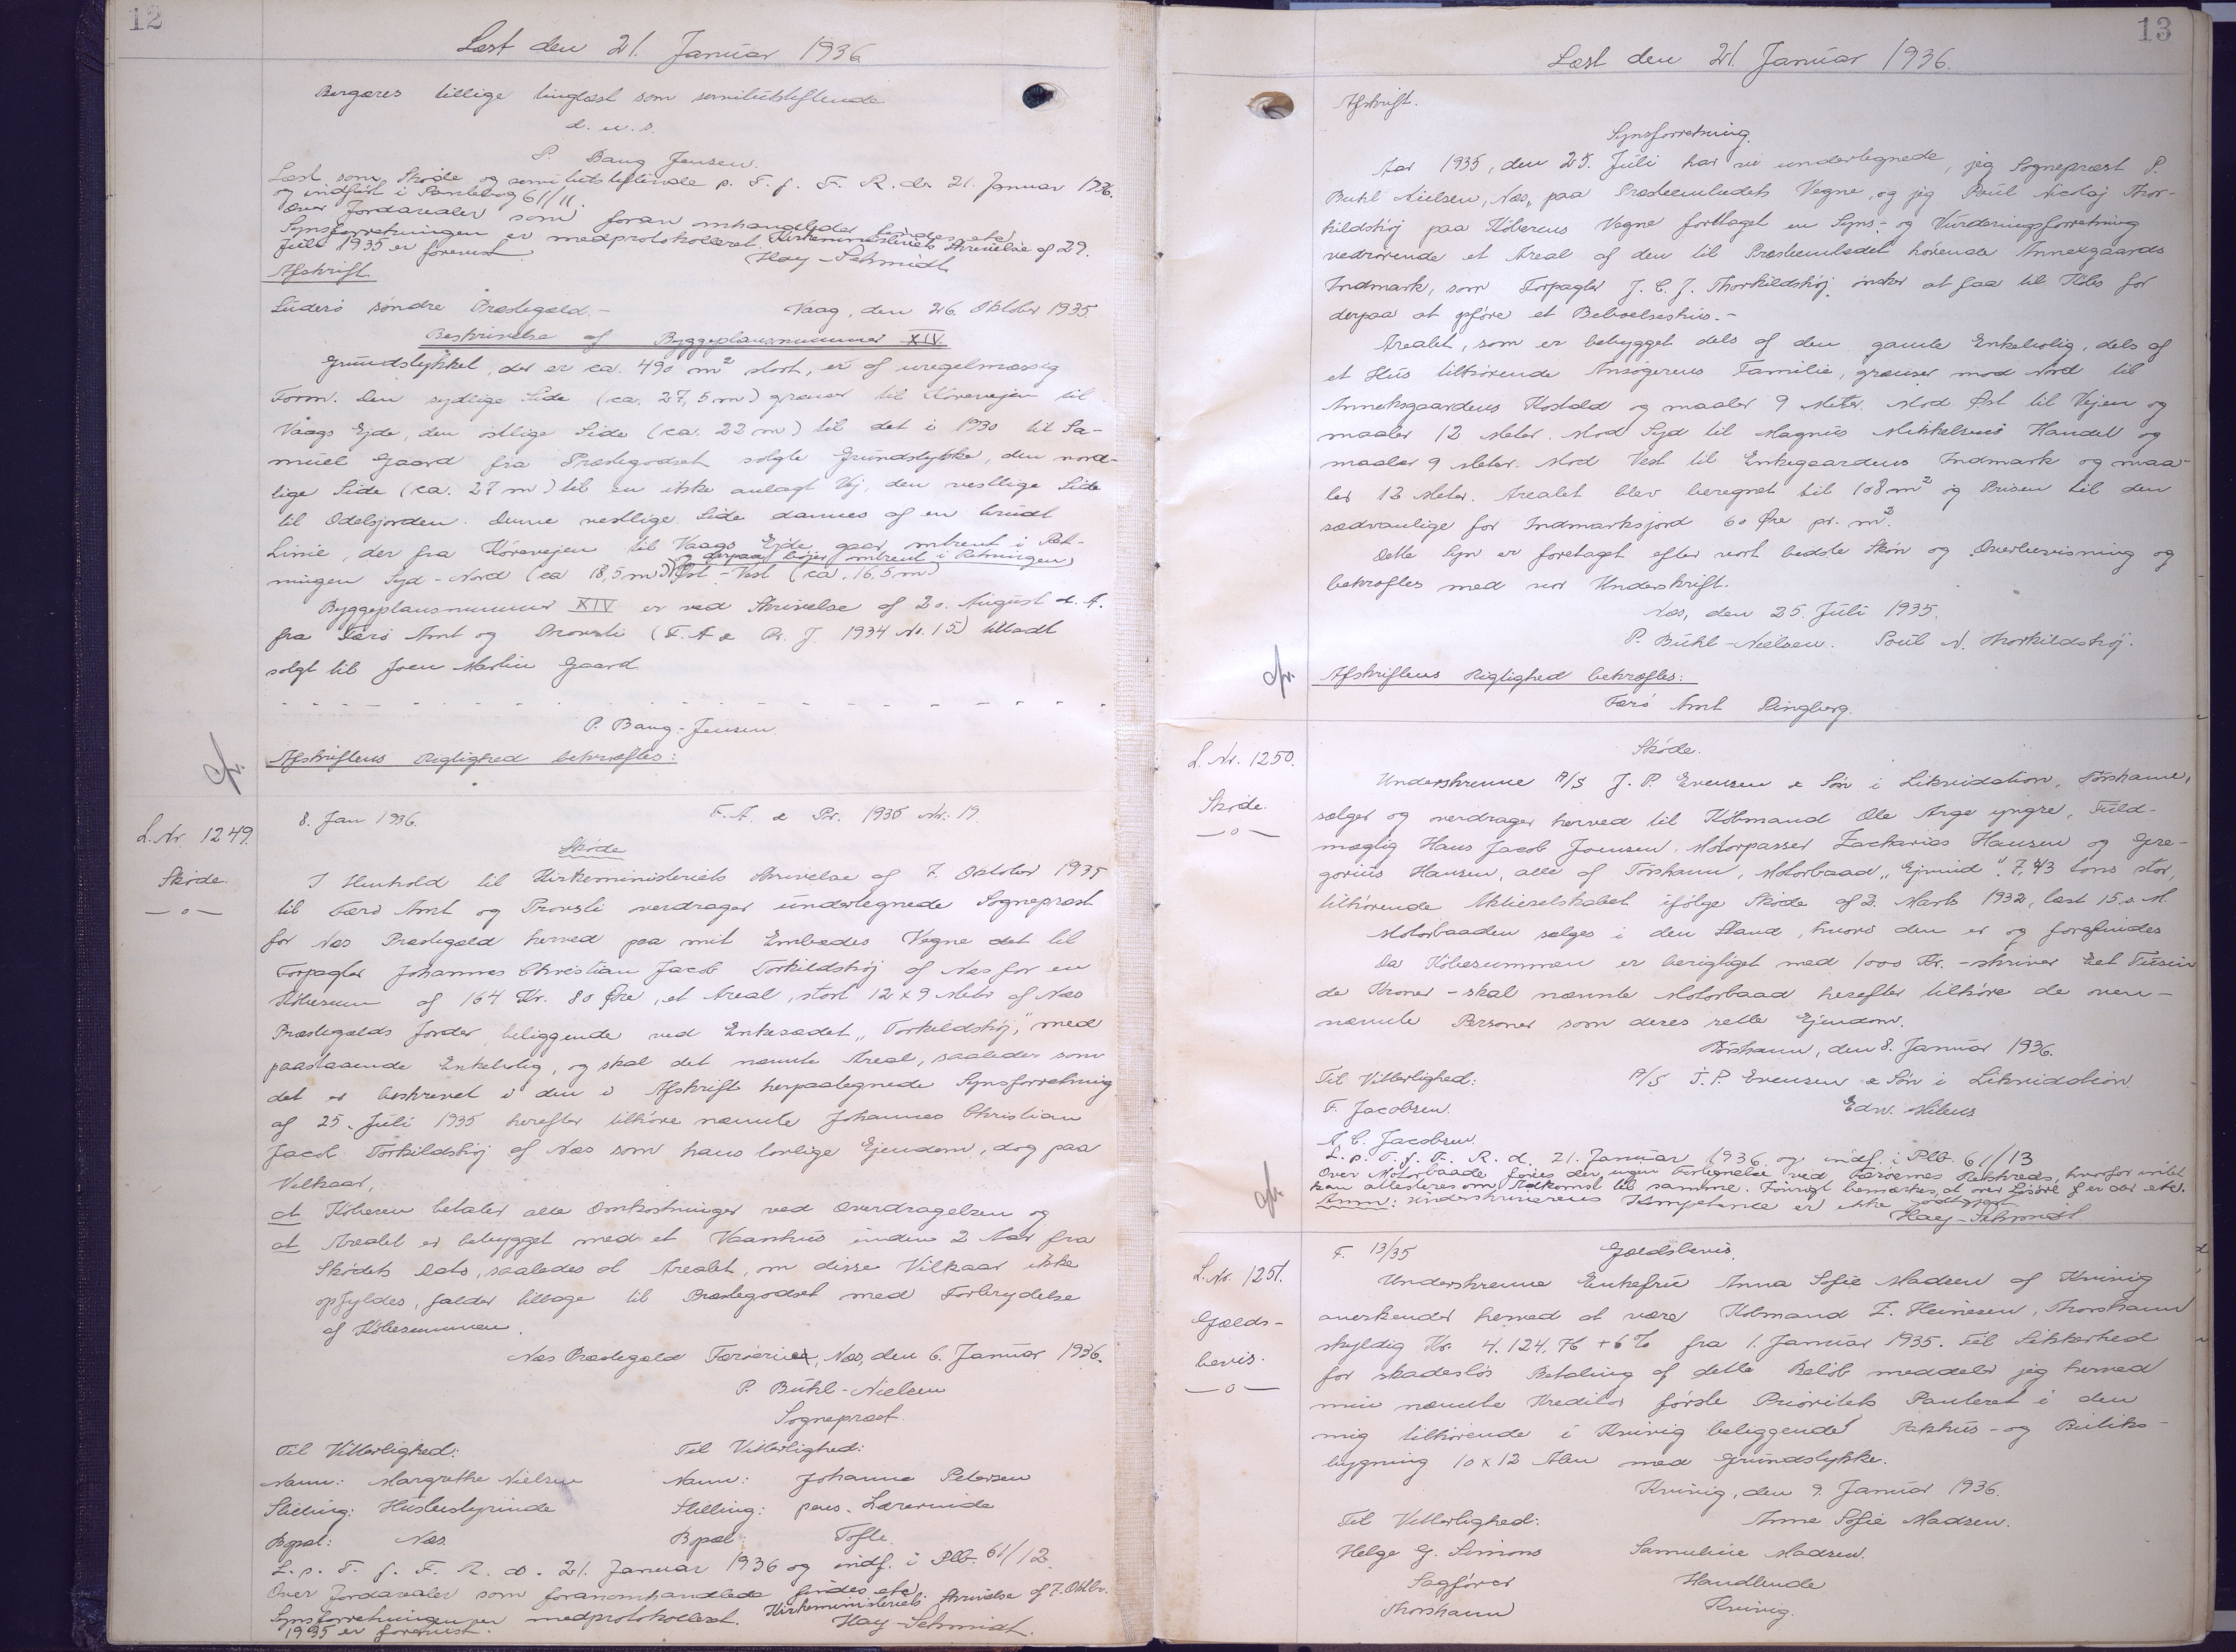 12
Læst den 21. Januar 1936
Begæres tillige tinglæst som servitutstiftende
d. u. s.
P. Bang Jensen.
Læst som Skøde og servitutstiftende p. T. f. F. R. d. 21. Januar 1936.
og indført i Pantebog 61/11.
Over Jordarealer som foran omhandlede findes etc.
Synsforretningen er medprotokolleret. Kirkeministeriets Skrivelse af 29.
Juli 1935 er forevist. Hay-Schmidt
Afskrift
Suderø søndre Præstegæld.- Vaag, den 26. Oktober 1935.
Beskrivelse af Byggeplansnummer XIV
Grundstykket, der er ca. 490 m² stort, er af uregelmæssig
Form. Den sydlige Side (ca. 27,5 m) grænser til Køreveien til
Vaags Ejde, den østlige Side (ca. 22 m) til det i 1930 til Sa-
muel Gaard fra Præstegodset solgte Grundstykke, den nord-
lige Side (ca. 27 m) til en ikke anlagt Vej, den vestlige Side
til Odelsjorden. Denne vestlige Side dannes af en brudt
Linie, der fra Kørevejen til Vaags Ejde gaar omtrent i Ret-
og derpaa bøjer omtrent i Retningen
ningen Syd-Nord (ca 18,5 m) Øst-Vest (ca. 16,5 m)
Byggeplansnummer XIV er ved Skrivelse af 20. August d. A.
fra Færø Amt og Provsti (F. A & Pr. J. 1934 Nr. 15) tilladt
solgt til Joen Martin Gaard.
P. Bang-Jensen
cfr.
Afskriftens Rigtighed bekræftes:
L. Nr. 1249.
Skøde.
—o—
8. Jan 1936. F. A. & Pr. 1936 Nr. 19.
Skøde
I Henhold til Kirkeministeriets Skrivelse af 7. Oktober 1935
til Færø Amt og Provsti overdrager undertegnede Sognepræst
for Næs Præstegæld herved paa mit Embedes Vegne det til
Forpagter Johannes Christian Jacob Torkildshøj af Næs for en
Købesum af 164 Kr. 80 Øre, et Areal, stort 12 x 9 Meter af Næs
Præstegælds Jorder, beliggende ved Enkesædet „Torkildshøj," med
paastaaende Enkebolig, og skal det nævnte Areal, saaledes som
det er beskrevet i den i Afskrift herpaategnede Synsforretning
af 25. Juli 1935 herefter tilhøre nævnte Johannes Christian
Jacob Torkildshøj af Næs som hans lovlige Ejendom, dog paa
Vilkaar,
at Køberen betaler alle Omkostninger ved Overdragelsen og
at Arealet er bebygget med et Vaanhus inden 2 Aar fra
Skødets Dato, saaledes at Arealet, om disse Vilkaar ikke
opfyldes, falder tilbage til Præstegodset med Fortrydelse
af Købesummen.
Næs Præstegæld Færøerne, Næs, den 6. Januar 1936.
P. Buhl-Nielsen
Sognepræst.
Til Vitterlighed: Til Vitterlighed:
Navn: Margrethe Nielsen Navn: Johanne Petersen
Stilling: Husbestyrinde Stilling: pens. Lærerinde
Bopæl: Næs. Bopæl: Tofte.
L. p. T. f. F. R. d. 21. Januar 1936 og indf. i Plb. 61/12.
Over Jordarealer som foranomhandlede findes etc.
Synsforretningen er medprotokolleret. Kirkeministeriets Skrivelse af 7. Oktbr.
1935 er forevist. Hay-Schmidt.
13
Læst den 21. Januar 1936.
Afskrift.
Synsforretning.
Aar 1935, den 25. Juli har vi undertegnede, jeg Sognepræst P.
Buhl Nielsen, Næs, paa Præsteembedets Vegne, og jeg Poul Nicolaj Thor-
kildshøj paa Køberens Vegne foretaget en Syns- og Vurderingsforretning
vedrørende et Areal af den til Præsteembedet hørende Annexgaards
Indmark, som Forpagter J. C. J. Thorkildshøj ønsker at faa til Købs for
derpaa at opføre et Beboelseshus.-
Arealet, som er bebygget dels af den gamle Enkebolig, dels af
et Hus tilhørende Ansøgerens Familie, grænser mod Nord til
Anneksgaardens Kostald og maaler 9 Meter. Mod Øst til Vejen og
maaler 12 Meter. Mod Syd til Magnus Mikkelsens Handel og
maaler 9 Meter. Mod Vest til Enkegaardens Indmark og maa-
ler 12 Meter. Arealet blev beregnet til 108 m² og Prisen til den
sædvanlige for Indmarksjord 60 Øre pr. m².
Dette Syn er foretaget efter vort bedste Skøn og Overbevisning og
bekræftes med vor Underskrift.
Næs, den 25. Juli 1935.
P. Buhl-Nielsen. Poul N. Thorkildshøj.
cfr.
Afskriftens Rigtighed bekræftes:
Færø Amt Ringberg.
L. Nr. 1250.
Skøde.
—o—
Skøde.
Underskrevne A/S J. P. Evensen & Søn i Likvidation, Tórshavn,
sælger og overdrager herved til Købmand Ole Arge yngre, Fuld-
mægtig Hans Jacob Joensen, Motorpasser Zacharias Hansen og Gre-
gorius Hansen, alle af Tórshavn, Motorbaad „Ejvind". 7,43 tons stor,
tilhørende Aktieselskabet ifølge Skøde af 2. Marts 1932, læst 15. s. M.
Motorbaaden sælges i den Stand, hvori den er og forefindes
Da Købesummen er berigtiget med 1000 Kr. - skriver Eet Tusin
de Kroner - skal nævnte Motorbaad herefter tilhøre de oven-
nævnte Personer som deres rette Ejendom.
Tórshavn, den 8. Januar 1936.
Til Vitterlighed: A/S J. P. Evensen & Søn i Likvidation
F. Jacobsen. Edw. Mitens
A. C. Jacobsen.
cfr.
L. p. T. f. F. R. d. 21. Januar 1936 og indf. i Plb. 61/13
Over Motorbaade føres der ingen Fortegnelse ved Færøernes Retskreds, hvorfor intet
kan attesteres om Adkomst til samme. Forøvrigt bemærkes, at over Løsøre etc.
Anm: Underskriverens Kompetence er ikke godtgjort
Hay-Schmidt.
L. Nr. 1251.
Gælds-
bevis.
—o—
F. 13/35 Gældsbevis.
Underskrevne Enkefru Anna Sofie Madsen af Kvivig
anerkender herved at være Købmand Z. Heinesen, Thorshavn
skyldig Kr. 4.124.76 + 6% fra 1. Januar 1935. Til Sikkerhed
for skadesløs Betaling af dette Beløb meddeler jeg herved
min nævnte Kreditor første Prioritets Panteret i den
mig tilhørende i Kvivig beliggende Pakhus- og Butiks-
bygning 10 x 12 Alen med Grundstykke.
Kvivig, den 9. Januar 1936.
Til Vitterlighed: Anne Sofie Madsen.
Helge G. Simons Samuline Madsen.
Sagfører Handlende
Thorshavn Kvivig.